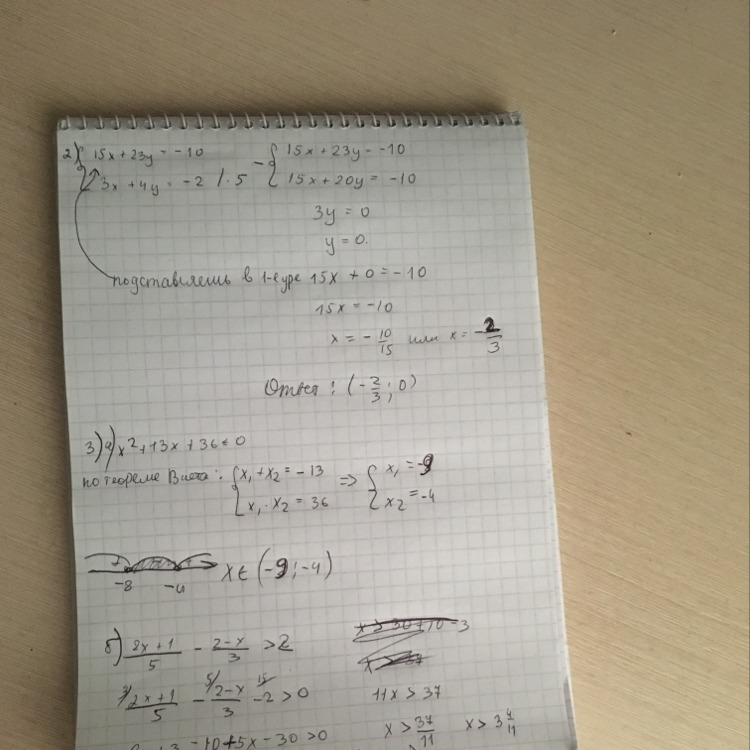 2) { 15x + 23y = -10
3x + 4y = -2 /·5
- { 15x + 23y = -10
15x + 20y = -10
3y = 0
y = 0.
подставляешь в 1-е ур-е 15x + 0 = -10
15x = -10
x = - 10/15 или x = -2/3
Ответ: (-2/3; 0)
3) а) x² + 13x + 36 < 0
по теореме Виета: { x₁ + x₂ = -13 => { x₁ = -9
x₁ · x₂ = 36 x₂ = -4
-8 -4 x ∈ (-9; -4)
б) (2x+1)/5 - (2-x)/3 > 2
3/ (2x+1)/5 - 5/ (2-x)/3 - 15/ 2 > 0
+ 3 - 10 + 5x - 30 > 0
11x > 37
x > 37/11 x > 3 4/11